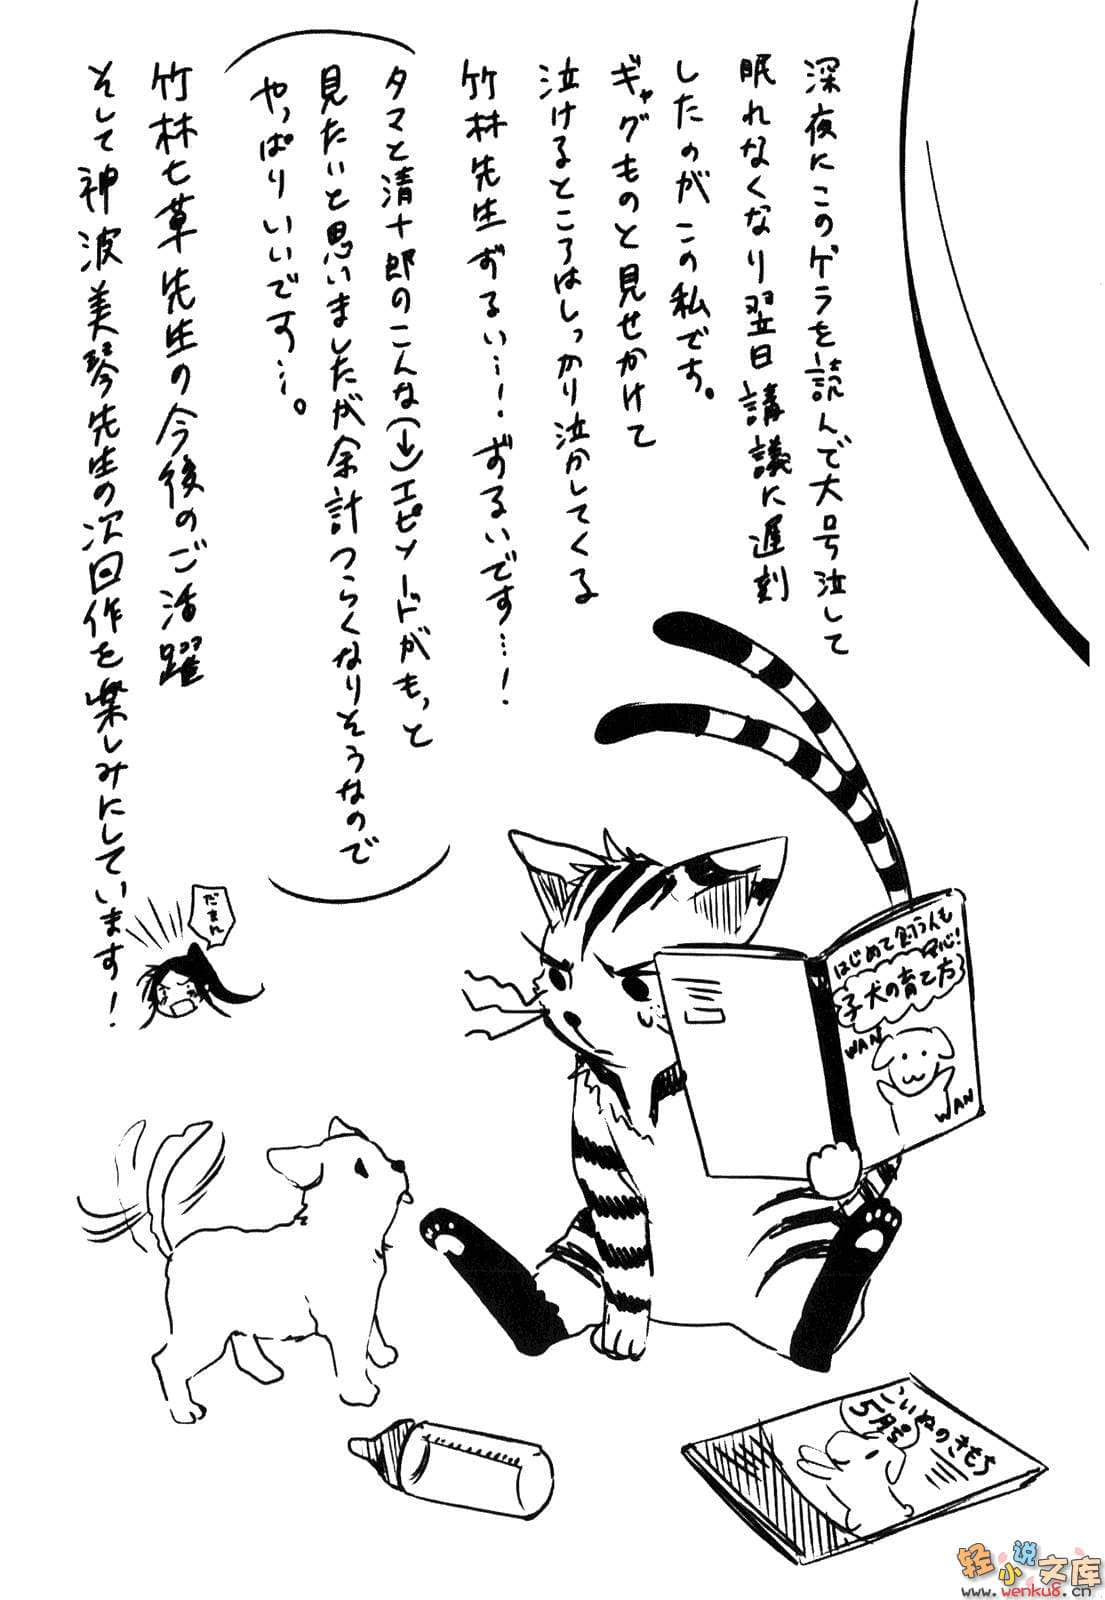 深夜にこのゲラを読んで大号泣して
眠れなくなり翌日講議に遅刻
したのがこの私です。
ギャグものと見せかけて
泣けるところはしっかり泣かしてくる
竹林先生ずるい…！ずるいです…！
タマと清十郎のこんな(↓)エピソードがもっと
見たいと思いましたが余計つらくなりそうなので
やっぱりいいです…。
竹林七草先生の今後のご活躍
そして神波美琴先生の次回作を楽しみにしています！
だまん
はじめて飼う人も
安心！
子犬の育て方
WAN
WAN
こいぬのきもち
5月号
轻小说文库
www.wenku8.cn